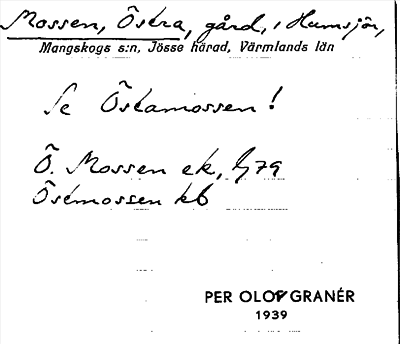 Mossen, Östra, gård, i Humsjön,
Mangskogs s:n, Jösse härad, Värmlands län
Se Östamossen !
Ö. Mossen ek, 79
Östmossen kb
PER OLOF GRANÉR
1939